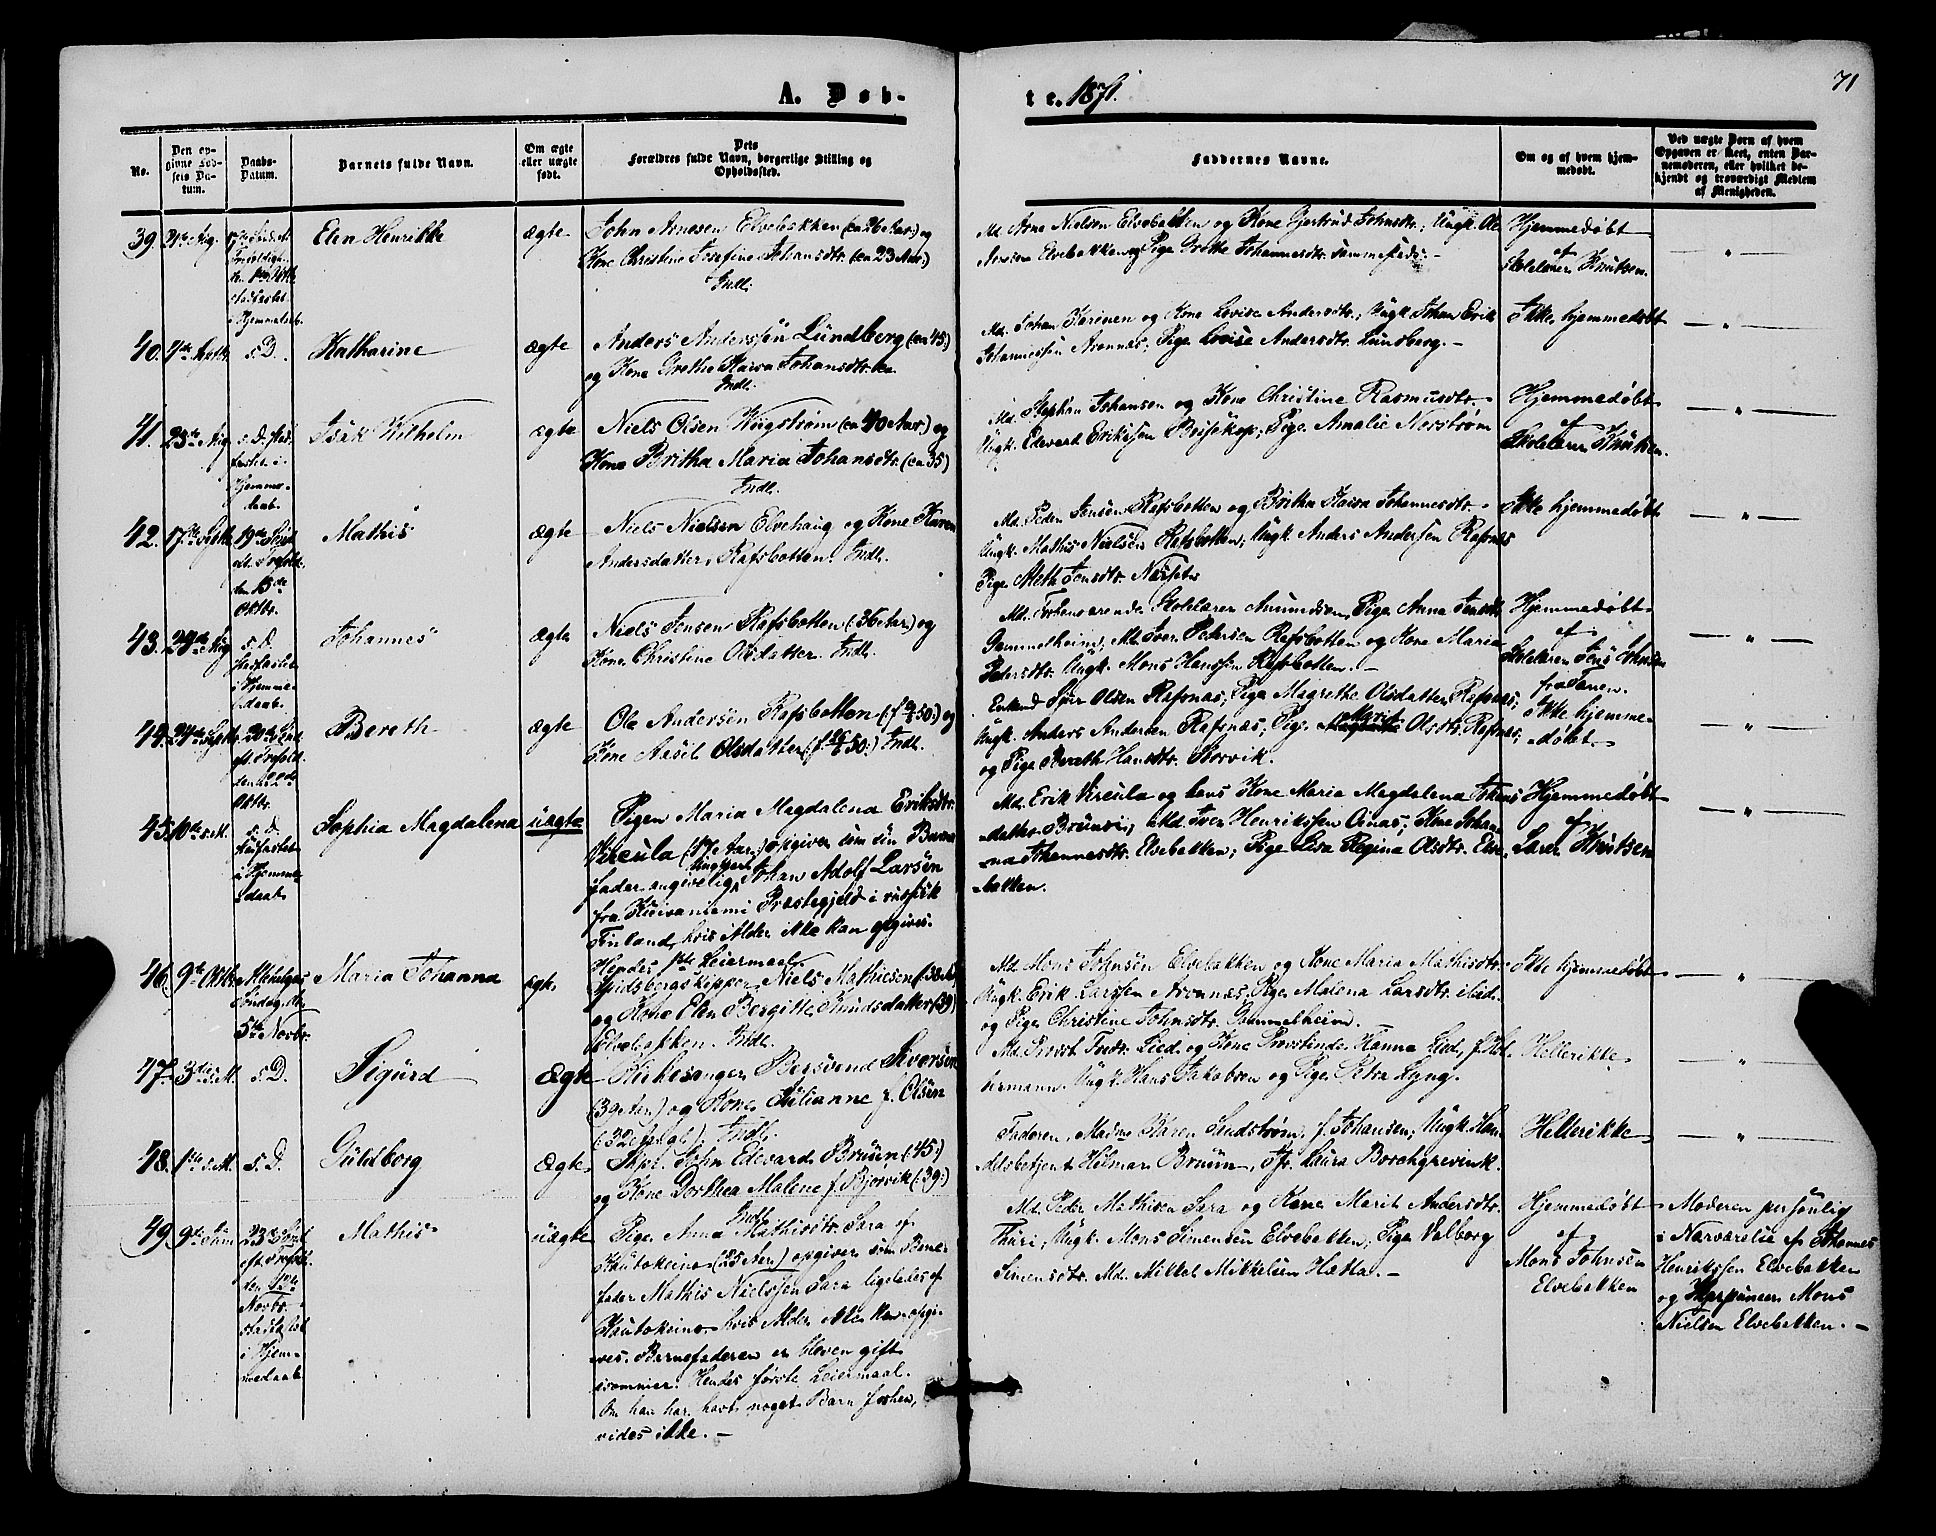 A. Døb-
te. 1871.
71
No.
Den opgivne Fødsels Datum.
Daabs-Datum.
Barnets fulde Navn.
Om ægte eller uægte født.
Dets Forældres fulde Navn, borgerlige Stilling og Opholdssted.
Faddernes Navne.
Om og af hvem hjemmedøbt.
Ved uægte Børn af hvem Opgaven er skeet, enten Barnemoderen, eller hvilket bekjendt og troværdigt Medlem af Menigheden.
39
Elen Henrikke
ægte
John Arnesen Elvebakken (ca 26 Aar) og
Kone Christine Josefine Johansdtr. (ca 23 Aar.)
Indl.
Md. Arne Nielsen Elvebakken og Kone Gjertrud Johnsdtr., Ungk. Ole
Arnesen Elvebakken og Pige Grethe Johannesdtr. sammesteds. -
Hjemmedøbt
af
Skolelærer Knutsen.
40
s. D.
Katharine
ægte
Anders Anderssen Lundberg (ca 45)
og Kone Grethe Kaisa Johansdtr.
Indl.
Md. Johan Karinen og Kone Lovise Andersdtr., Ungk. Johan Erik
Johannessen Aronnæs, Pige Lovise Andersdtr. Lundberg. -
Ikke hjemmedøbt
41.
25de Aug.
s. D. stadfæstet i Hjemmedaab.
Isak Wilhelm
ægte
Niels Olsen Kvigstrøm (ca 40 Aar.) og
Kone Britha Maria Johansdtr. (ca 35)
Indl.
Md. Stephan Johansen og Kone Christine Rasmusdtr. -
Ungk. Edevard Erikssen Beisekop; Pige Amalie Norstrøm
Hjemmedøbt
af
Skolelærer Knutsen.
42.
17de Septbr.
Mathis
ægte
Niels Nielsen Elvehaug og Kone Karen
Andersdatter Rafsbotten. Indl.
Md. Peder Jensen Rafsbotten og Britha Kaisa Johannesdtr. -
Ungk. Mathis Nielsen Rafsbotten; Ungk. Anders Andersen Rafsnæs
Pige Meth Jensdtr.
Ikke hjemmedøbt
43.
s. D. stadfæstet i Hjemmedaab.
Johannes
ægte
Niels Jensen Rafsbotten (36 Aar.) og
Kone Christine Olsdatter. Indl.
Skolelærer Amundsen, Pige Anna Jensdtr.
Gammelheim, Md. Iver Pedersen Rafsbotten og Kone Maria
Pedersdtr. Ungk. Mons Hanssen Rafsbotten. -
Hjemmedøbt
af
Skolelærer Jens Johnsen
fra Tanen.
44.
24de Septbr.
Bereth
ægte
Ole Andersen Rafsbotten og
Kone Aasil Olsdatter Indl.
Enkemd. Sjur Olsen Rafsnæs, Pige Magrethe Olsdatter Rafsnæs;
Ungk. Anders Andersen Rafsnæs; Pige Marit Olsdtr. Rafsnæs;
og Pige Bereth Hansdtr. Storvik.
Ikke hjemmedøbt. -
45
10de s. M.
s. D. stadfæstet i Hjemmedaab
Sophia Magdalena
uægte
Pigen Maria Magdalena Eriksdtr.
Vircula (17 Aar.) opgiver som sin Barne
fader angivelig Ungkarl Johan Adolf Larsen
fra Kuivaniemi Præstegjeld i russisk
Finland, hvis Alder ikke kan opgives.
Hendes 1ste Leiermaal.
Md. Erik Vircula og hans Kone Maria Magdalena Johans
datter Brunsi; Md. Iver Henrikssen Oinas; Kone Johan
na Johannesdtr. Elvebakken; Pige Lisa Regina Olsdtr. Elve
bakken.
Hjemmedøbt
af
Lærer Knutsen
46.
9de Oktbr.
Maria Johanna
ægte
Spidsbergskipper Niels Mathiesen (38 Aar)
og Kone Elen Bergitte Knudsdatter (39)
Elvebakken. Indl.
Md. Mons Johnsen Elvebakken og Kone Maria Mathisdtr. -
Ungk. Erik Larssen Aronnæs, Pige Malena Larsdtr. ibid.
og Pige Christine Johnsdtr. Gammelheim.
Ikke hjemmedøbt
47
3die s. M.
s. D.
Sigurd
Ægte
Kirkesanger Bersvend Siversen
(39 Aar.) og Kone Julianne f. Olsen
(32 ) Indl.
Md. Provst Lied og Kone Provstinde Hanna Lied, f. Hol
hermann. Ungk. Hans Jakobsen og Pige Petra Lyng.
Hellerikke
48.
1ste s. M.
s. D.
Guldborg
Ægte
John Edevard Bruun (45)
og Kone Dorthea Malene f. Bjørvik (39.)
Indl.
Faderen, Madme Karen Sundstrøm, f. Johansen; Ungk. Han
delsbetjent Hilmar Bruun, Jfr. Laura Borchgrevink.
Hellerikke
49
Mathis
uægte
Pige Anna Mathisdtr. Sara af
Kautokeino (25 Aar) opgiver som Barne
fader Mathis Nielssen Sara ligeledes af
Kautokeino, hvis Alder ikke kan opgi
ves. Barnefaderen er bleven gift
isommer. Hendes første Leiermaal.
Om han har havt noget Barn forhen,
vides ikke. -
Md. Peder Mathisen Sara og Kone Marit Andersdtr.
Thuri, Ungk. Mons Simensen Elvebakken; Pige Valborg
Simensdtr. Md. Mikkel Mikkelsen Hætta. -
Hjemmedøbt
af
Mons Johnsen
Elvebakken
Moderen personlig
i Nærværelse af Johannes
Henrikssen Elvebakken
og Mons
Nielsen Elvebakken. -